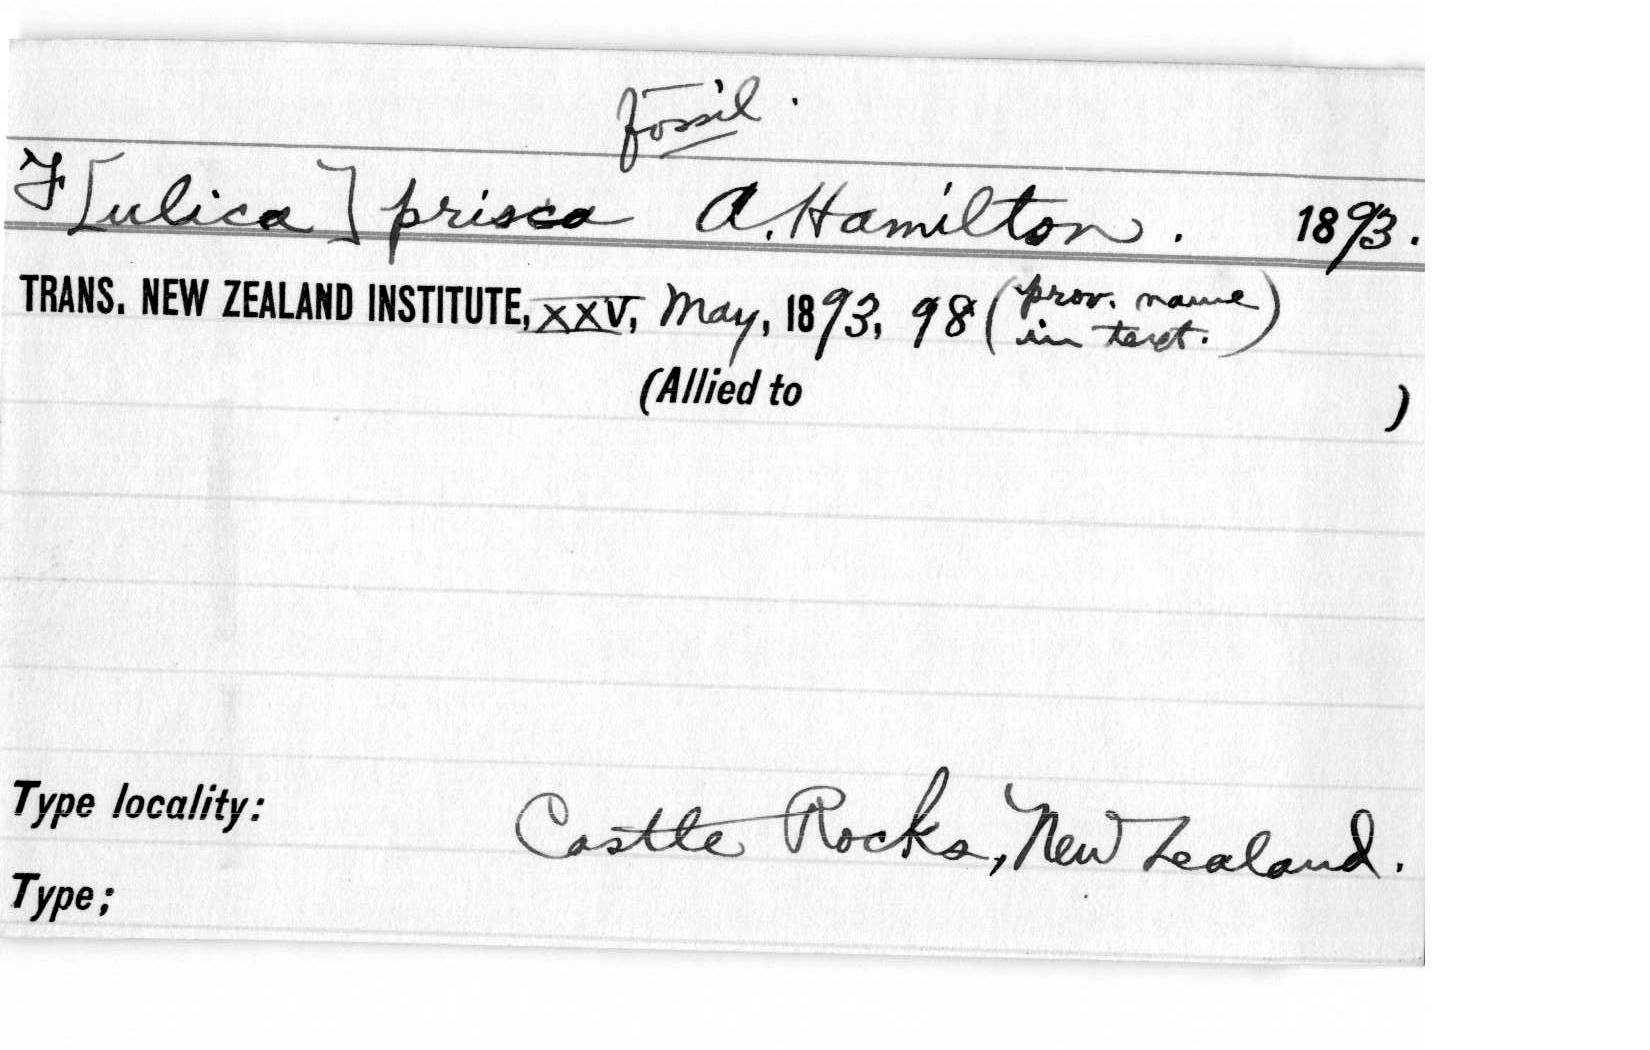 fossil.
F[ulica] prisca A. Hamilton. 1893.
TRANS. NEW ZEALAND INSTITUTE, XXV, May, 1893, 98 (prov. name in text.)
(Allied to )
Type locality: Castle Rocks, New Zealand.
Type;